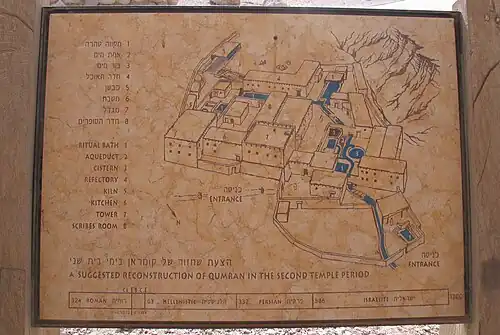 מקווה טהרה 1
אמת מים 2
בור מים 3
חדר האוכל 4
כבשן 5
מטבח 6
מגדל 7
חדר הסופרים 8
RITUAL BATH 1
AQUEDUCT 2
CISTERN 3
REFECTORY 4
KILN 5
KITCHEN 6
TOWER 7
SCRIBES ROOM 8
כניסה
ENTRANCE
כניסה
ENTRANCE
הצעת שחזור של קומראן בימי בית שני
A SUGGESTED RECONSTRUCTION OF QUMRAN IN THE SECOND TEMPLE PERIOD
324 ROMAN רומית 63 HELLENISTIC הלניסטית 332 PERSIAN פרסית 586 ISRAELITE ישראלית 1200